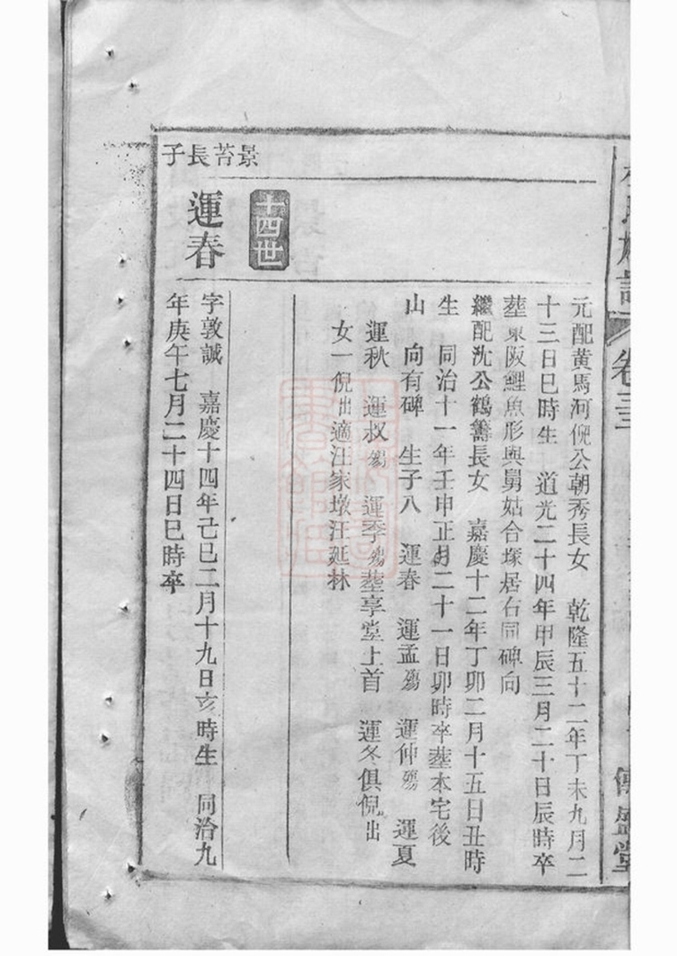 元配黃馬河倪公朝秀長女　乾隆五十二年丁未九月二
十三日巳時生　道光二十四年甲辰三月二十日辰時卒
塟東阪鯉魚形與舅姑合塚居右同碑向
繼配沈公鶴籌長女　嘉慶十二年丁卯二月十五日丑時
生　同治十一年壬申正月二十一日卯時卒塟本宅後
山　向有碑　生子八　運春　運孟殤　運仲殤　運夏
運秋　運叔殤　運季殤塟享堂上首　運冬俱倪出
女一倪出適汪家墩汪延林
十四世
景苔長子
運春
字敦誠　嘉慶十四年己巳二月十九日亥時生　同治九
年庚午七月二十四日巳時卒